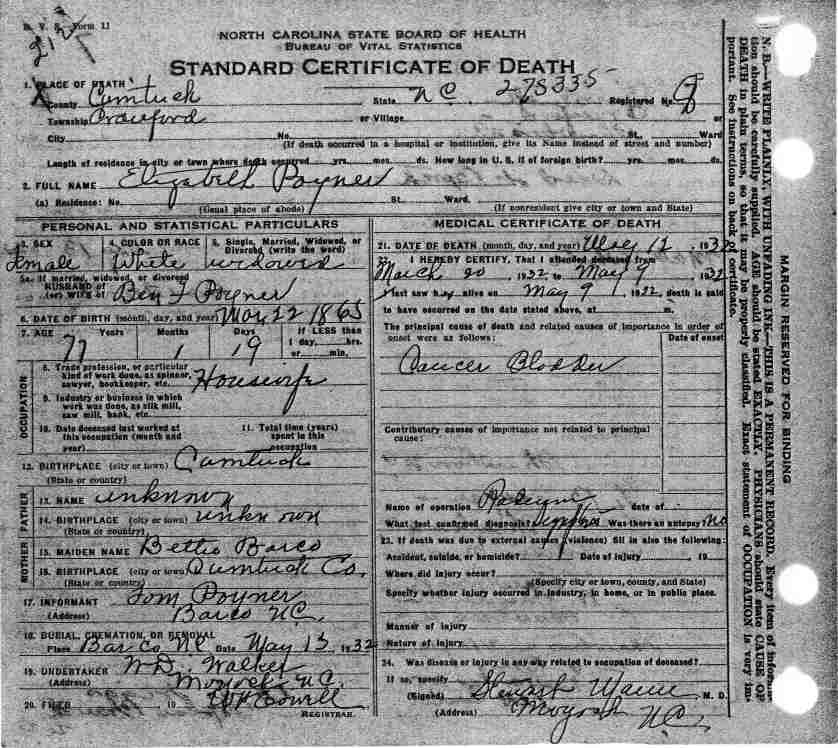 Form 11
NORTH CAROLINA STATE BOARD OF HEALTH
BUREAU OF VITAL STATISTICS
STANDARD CERTIFICATE OF DEATH
1. PLACE OF DEATH
County Currituck State N.C. 275335 Registered No.
Township Crawford or Village
City No. St., Ward
(If death occurred in a hospital or institution, give its NAME instead of street and number)
Length of residence in city or town where death occurred yrs. mos. ds. How long in U. S. if of foreign birth? yrs. mos. ds.
2. FULL NAME Elizabeth Poyner
(a) Residence: No. St. Ward.
(Usual place of abode) (If nonresident give city or town and State)
PERSONAL AND STATISTICAL PARTICULARS
3. SEX 4. COLOR OR RACE 5. Single, Married, Widowed, or Divorced (write the word)
Female White widowed
5a. If married, widowed, or divorced
HUSBAND of
(or) WIFE of Ben F Poyner
6. DATE OF BIRTH (month, day, and year) Mar 22 1865
7. AGE Years Months Days If LESS than
1 day, hrs.
77 1 19 or min.
OCCUPATION
8. Trade profession, or particular
kind of work done, as spinner,
sawyer, bookkeeper, etc. Housewife
9. Industry or business in which
work was done, as silk mill,
saw mill, bank, etc.
10. Date deceased last worked at
this occupation (month and
year)
11. Total time (years)
spent in this
occupation
12. BIRTHPLACE (city or town) Currituck
(State or country)
FATHER
13. NAME unknown
14. BIRTHPLACE (city or town) unknown
(State or country)
MOTHER
15. MAIDEN NAME Bettie Barco
16. BIRTHPLACE (city or town) Currituck Co.
(State or country)
17. INFORMANT Tom Poyner
(Address) Barco N.C.
18. BURIAL, CREMATION, OR REMOVAL
Place Barco NC Date May 13 1932
19. UNDERTAKER W.D. Walker
(Address) Moyock N.C.
20. FILED 19
REGISTRAR.
MEDICAL CERTIFICATE OF DEATH
21. DATE OF DEATH (month, day, and year) May 12, 1932
22. I HEREBY CERTIFY, That I attended deceased from
March 20, 1932 to May 9, 1932
I last saw her alive on May 9, 1932, death is said
to have occurred on the date stated above, at m.
The principal cause of death and related causes of importance in order of
onset were as follows: Date of onset
Cancer Bladder
Contributory causes of importance not related to principal
cause:
Name of operation Date of
What test confirmed diagnosis? Was there an autopsy? No
23. If death was due to external causes (violence) fill in also the following:
Accident, suicide, or homicide? Date of injury 19
Where did injury occur?
(Specify city or town, county, and State)
Specify whether injury occurred in industry, in home, or in public place.
Manner of injury
Nature of injury
24. Was disease or injury in any way related to occupation of deceased?
If so, specify
(Signed) M. D.
(Address) Moyock N.C.
MARGIN RESERVED FOR BINDING
N. B.—WRITE PLAINLY, WITH UNFADING INK—THIS IS A PERMANENT RECORD. Every item of information should be carefully supplied. AGE should be stated EXACTLY. PHYSICIANS should state CAUSE OF DEATH in plain terms, so that it may be properly classified. Exact statement of OCCUPATION is very important. See instructions on back of certificate.